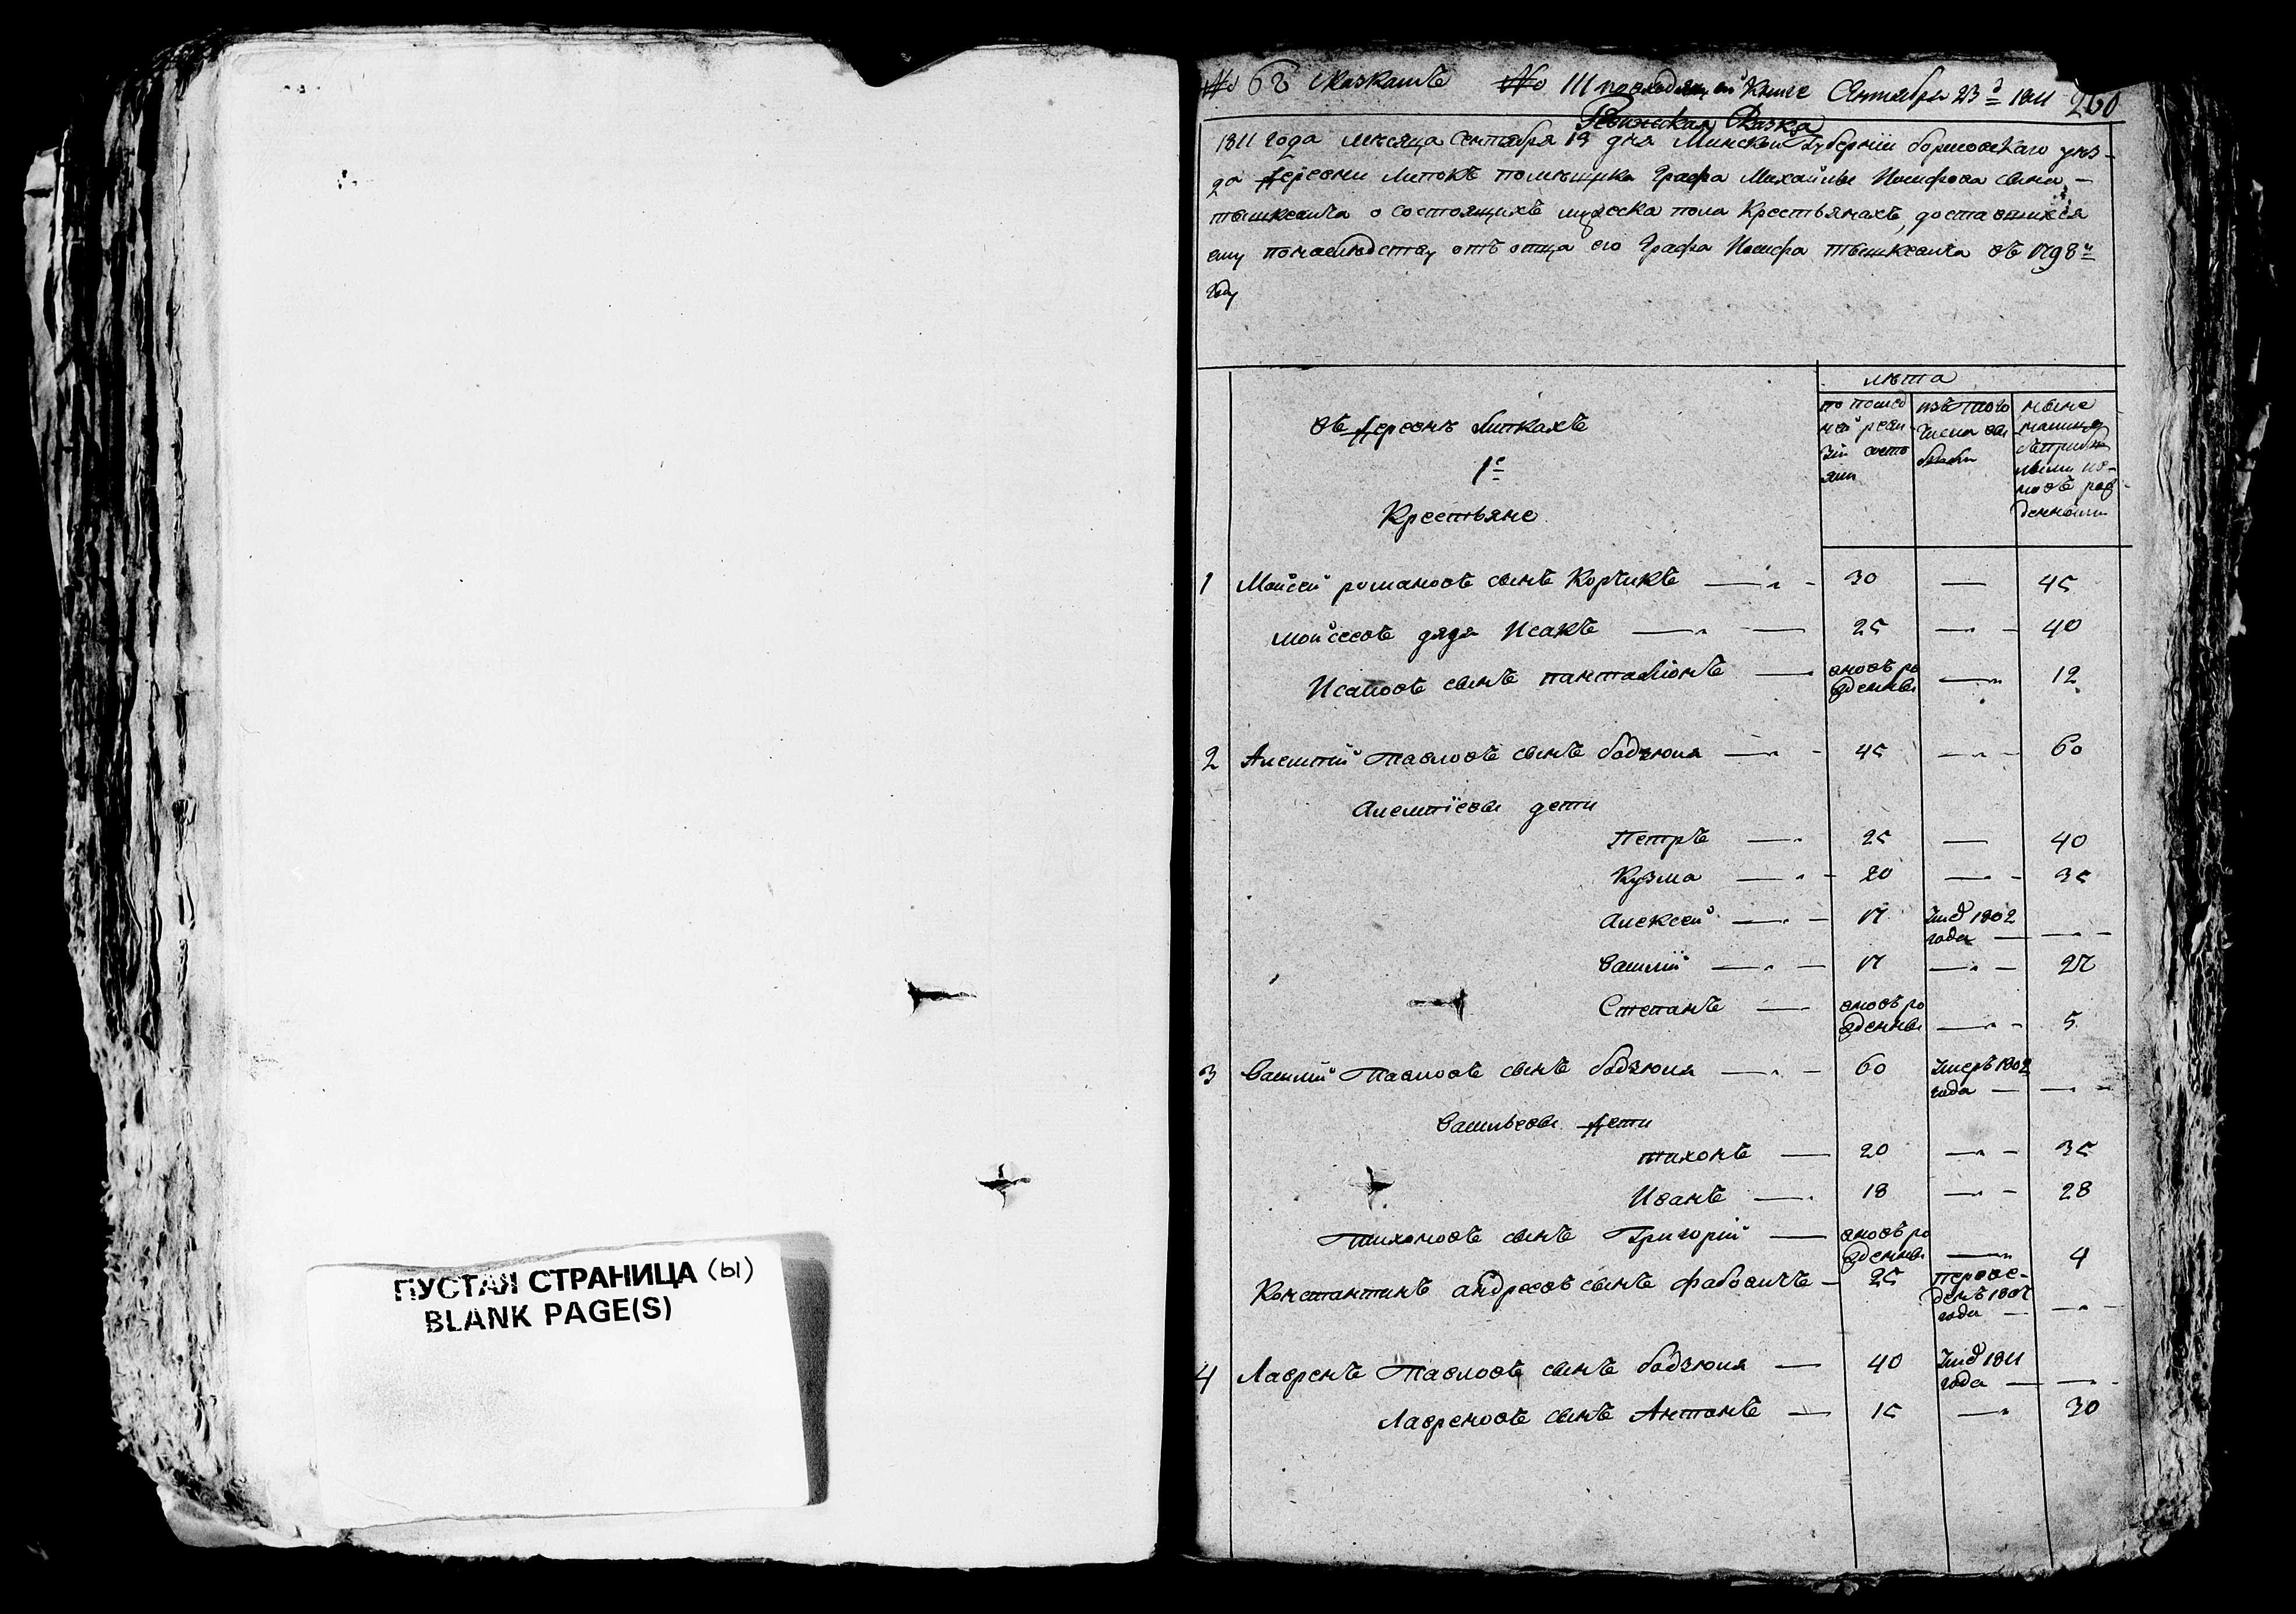 ПУСТАЯ СТРАНИЦА (ы)
BLANK PAGE(S)
№ 68 сказкамъ № 111 по входящей книге Сентября 23 1811
260
Ревизская Сказка
1811 года месяца Сентября 19 дня Минской Губернии борисовскаго уез-
да деревни Липокъ помещика Графа Михаилы Иосифова сына
тышкевича о состоящихъ мужеска пола крестьянахъ, доставшихся
ему понаследству отъ отца его Графа Иосифа тышкевича въ 1798м
году
лета
въ деревне липкахъ
1е
Крестьяне
по послед
ней реви
зии состо
яли
изъ того
числа вы
были
ныне
налицо
новъ рож
денными
1 Моисей романовъ сынъ Корсикъ 30 — 45
моисеевъ дядя Исакъ 25 — 40
Исаковъ сынъ панталионъ вновь ро
жденны — 12
2 Алемпий Павловъ сынъ бадзюля 45 — 60
Алемпиевы дети
Петръ — 25 — 40
Кузма — 20 — 35
Алексей — 17 1802
года —
Василий — 17 — 27
Степанъ — вновь ро
жденны — 5
3 Василий Павловъ сынъ бадзюля — 60 Умеръ 1802
года —
Васильевы дети
тихонъ — 20 — 35
Иванъ — 18 — 28
Тихоновъ сынъ Григорий — вновь ро
жденны — 4
Константинъ андреевъ сынъ фабовичъ — 25 переве-
денъ 1807
года —
4 Лавренъ Павловъ сынъ бадзюля — 40 1811
года —
Лавреновъ сынъ Антонъ — 15 — 30